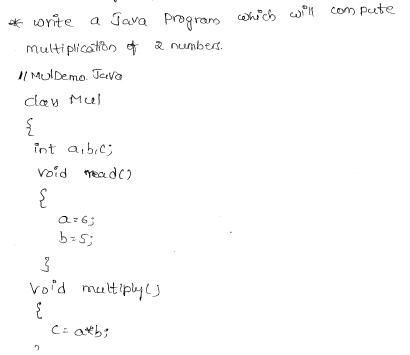 * write a Java Program which will compute
multiplication of 2 numbers.
// MulDemo.Java
class Mul
{
int a,b,c;
void read()
{
a=6;
b=5;
}
void multiply()
{
c=a*b;